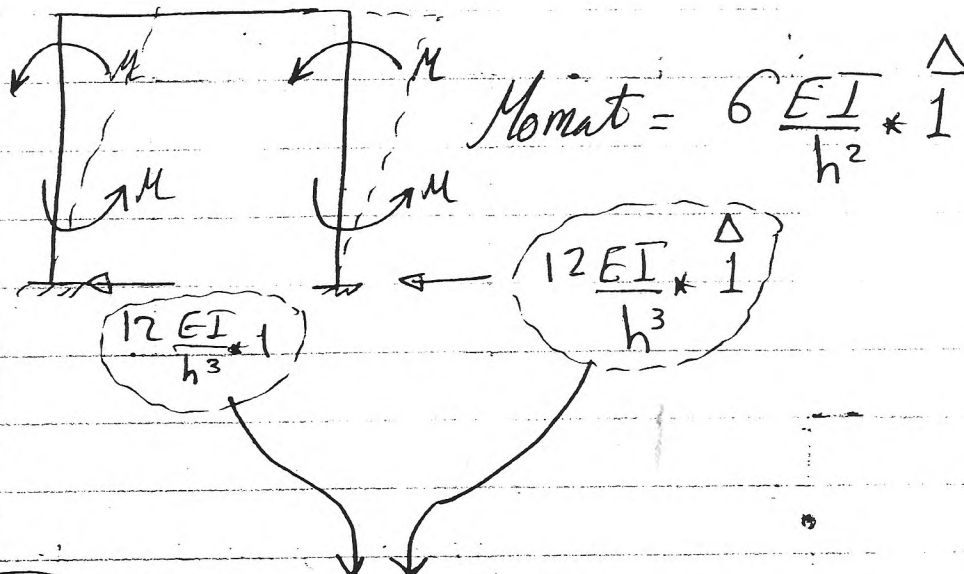 M M
M M
Δ
Momat = 6 EI/h² * 1
Δ
12 EI/h³ * 1
12 EI/h³ * 1